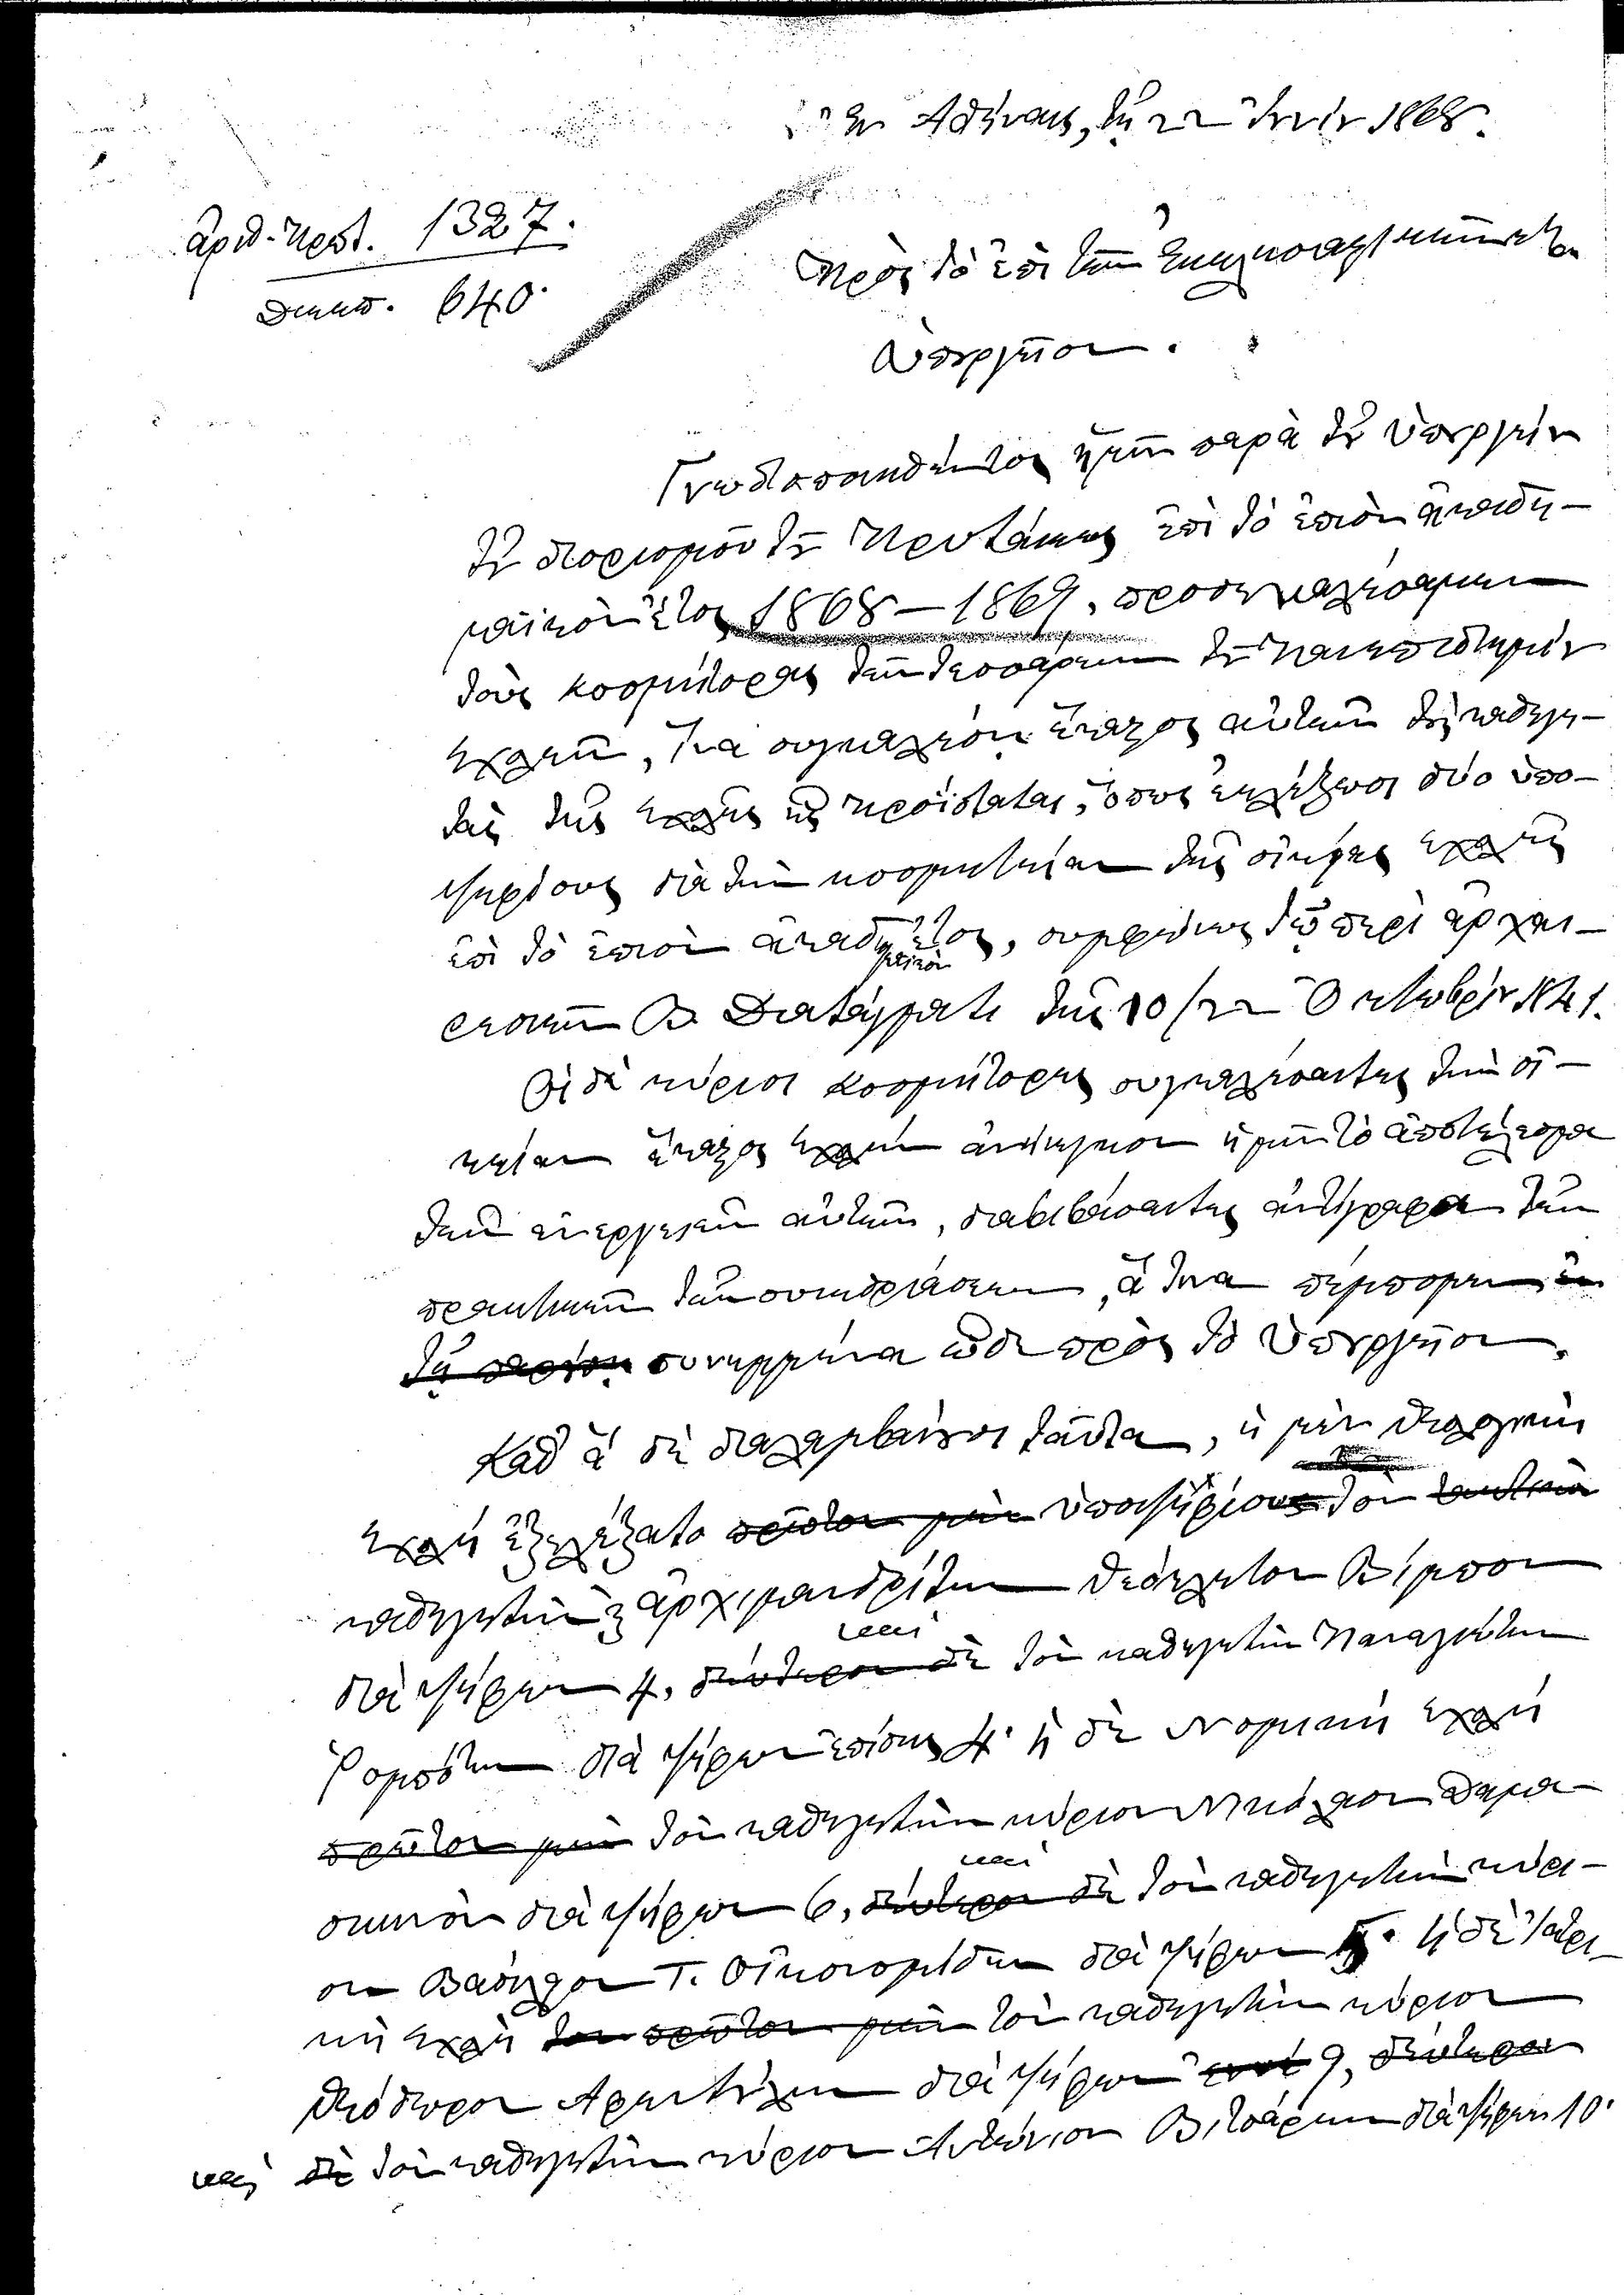 Ἐν Ἀθήναις, τῇ 22 Ἰουνίου 1868.
ἀριθ. Πρωτ. 1327.
Διεκπ. 640.
Πρὸς τὸ ἐπὶ τῶν Ἐκκλησιαστικῶν κτλ.
Ὑπουργεῖον.
Γνωστοποιηθέντος ἡμῖν παρὰ τοῦ Ὑπουργείου
τοῦ διορισμοῦ τοῦ Πρυτάνεως ἐπὶ τὸ ἐπιὸν ἀκαδη-
μαϊκὸν ἔτος 1868–1869, προσεκαλέσαμεν
τοὺς κοσμήτορας τῶν τεσσάρων τοῦ Πανεπιστημίου
σχολῶν, ἵνα συγκαλέσῃ ἕκαστος αὐτῶν τοὺς καθηγη-
τὰς τῆς σχολῆς ἧς προΐσταται, ὅπως ἐκλέξωσι δύο ὑπο-
ψηφίους διὰ τὴν κοσμητείαν τῆς οἰκείας σχολῆς
ἐπὶ τὸ ἐπιὸν ἀκαδημαϊκὸν ἔτος, συμφώνως τῷ περὶ ἀρχαι-
ρεσιῶν Β. Διατάγματι τῆς 10/22 Ὀκτωβρίου 1841.
Οἱ δὲ κύριοι κοσμήτορες συγκαλέσαντες τὴν οἰ-
κείαν ἕκαστος σχολὴν ἀνήγγειλον ἡμῖν τὸ ἀποτέλεσμα
τῶν ἐνεργειῶν αὐτῶν, διαβιβάσαντες ἀντίγραφα τῶν
πρακτικῶν τῶν συνεδριάσεων, ἅτινα πέμπομεν ἐν
τῷ παρόντι συνημμένα ὧδε πρὸς τὸ Ὑπουργεῖον.
Καθ' ἃ δὲ διαλαμβάνουσι ταῦτα, ἡ μὲν Θεολογικὴ
σχολὴ ἐξελέξατο πρῶτον μὲν ὑποψηφίους τὸν
καθηγητὴν ἀρχιμανδρίτην Θεόκλητον Βίμπον
διὰ ψήφων 4, δεύτερον δὲ καὶ τὸν καθηγητὴν Παναγιώτην
Ῥομπότην διὰ ψήφων ἐπίσης 4· ἡ δὲ Νομικὴ σχολὴ
πρῶτον μὲν τὸν καθηγητὴν κύριον Νικόλαον Δαμα-
σκηνὸν διὰ ψήφων 6, δεύτερον δὲ καὶ τὸν καθηγητὴν κύρι-
ον Βασίλειον Γ. Οἰκονομίδην διὰ ψήφων 5· ἡ δὲ Ἰατρι-
κὴ σχολὴ τὸν πρῶτον μὲν τὸν καθηγητὴν κύριον
Θεόδωρον Ἀφεντούλην διὰ ψήφων ἐννέα 9, δεύτερον
καὶ δὲ τὸν καθηγητὴν κύριον Ἀντώνιον Βιτσάρην διὰ ψήφων 10·